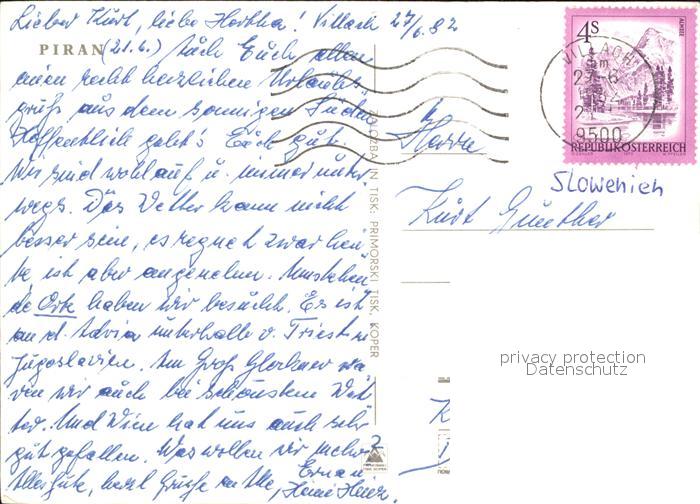 Lieber Kurt, liebe Hertha! Villach 27/6.82
PIRAN (21.6.) Euch Euch allen
einen recht herzlichen Urlaubs-
gruß aus dem sonnigen Süden
Hoffentlich geht's Euch gut.
Wir sind wohlauf u. immer unter-
wegs. Das Wetter kann nicht
besser sein, es regnet zwar heu-
te ist aber angenehm. Umstehen-
de Orte haben wir besucht. Es ist
an d. Adria unterhalb v. Triest in
Jugoslavien. Am Groß Glockner wa-
ren wir auch bei schönstem Wet-
ter. Und Wien hat uns auch sehr
gut gefallen. Was wollen wir mehr?
Alles Gute, herzl Grüße an Alle,
Heinz
ZALOŽBA IN TISK: PRIMORSKI TISK, KOPER
4S
ALMSEE
VILLACH
27-6
9500
REPUBLIK ÖSTERREICH
Slowenien
Herrn
Kurt Günther
privacy protection
Datenschutz
K